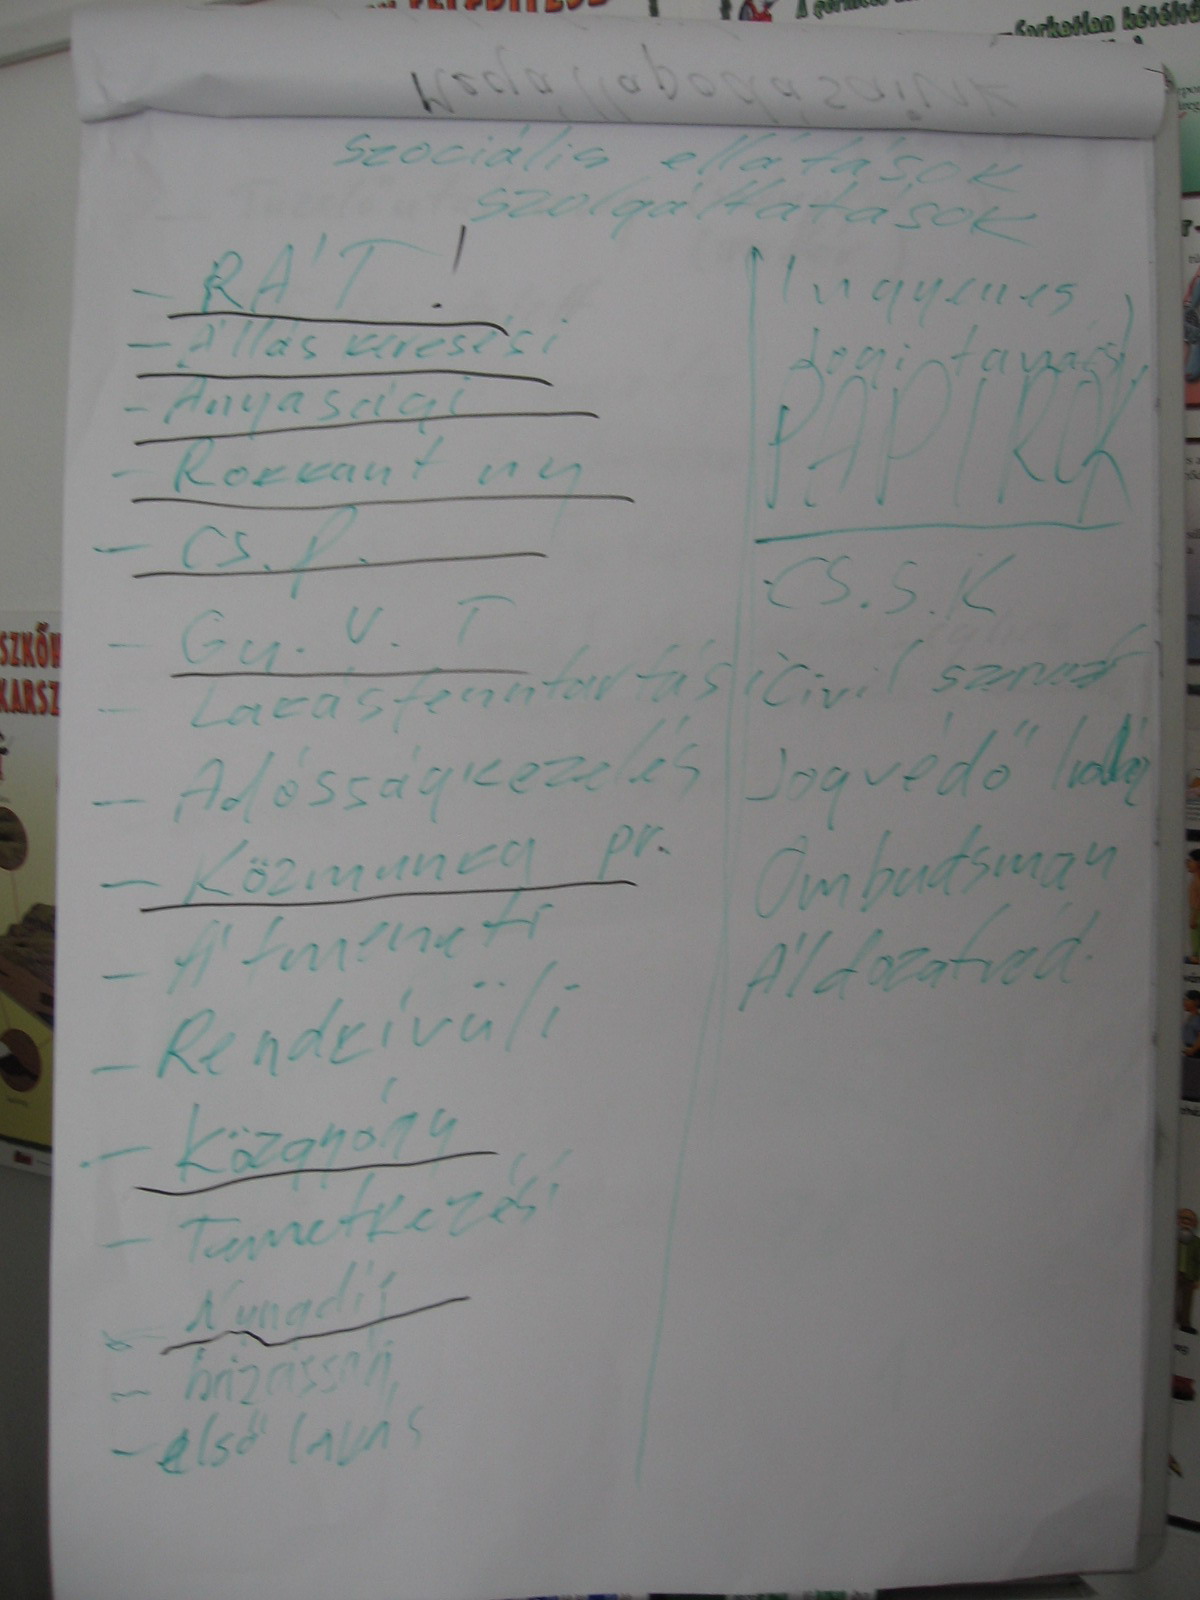 Megállapodásaink
szociális ellátások
szolgáltatások
- RÁT!
- Álláskeresési
- Anyasági
- Rokkant ny
- CS.P.
- Gy. V. T
- Lakásfenntartási
- Adósságkezelés
- Közmunka pr.
- Átmeneti
- Rendkívüli
- Közgyógy
- Temetkezési
- Nyugdíj
- házasság,
- első lakás
Ingyenes
Jogi tanács
PAPÍROK
CS.S.K
Civil szervez
Jogvédő
Ombudsman
Áldozatvéd.
SZKÖ
KARSZ